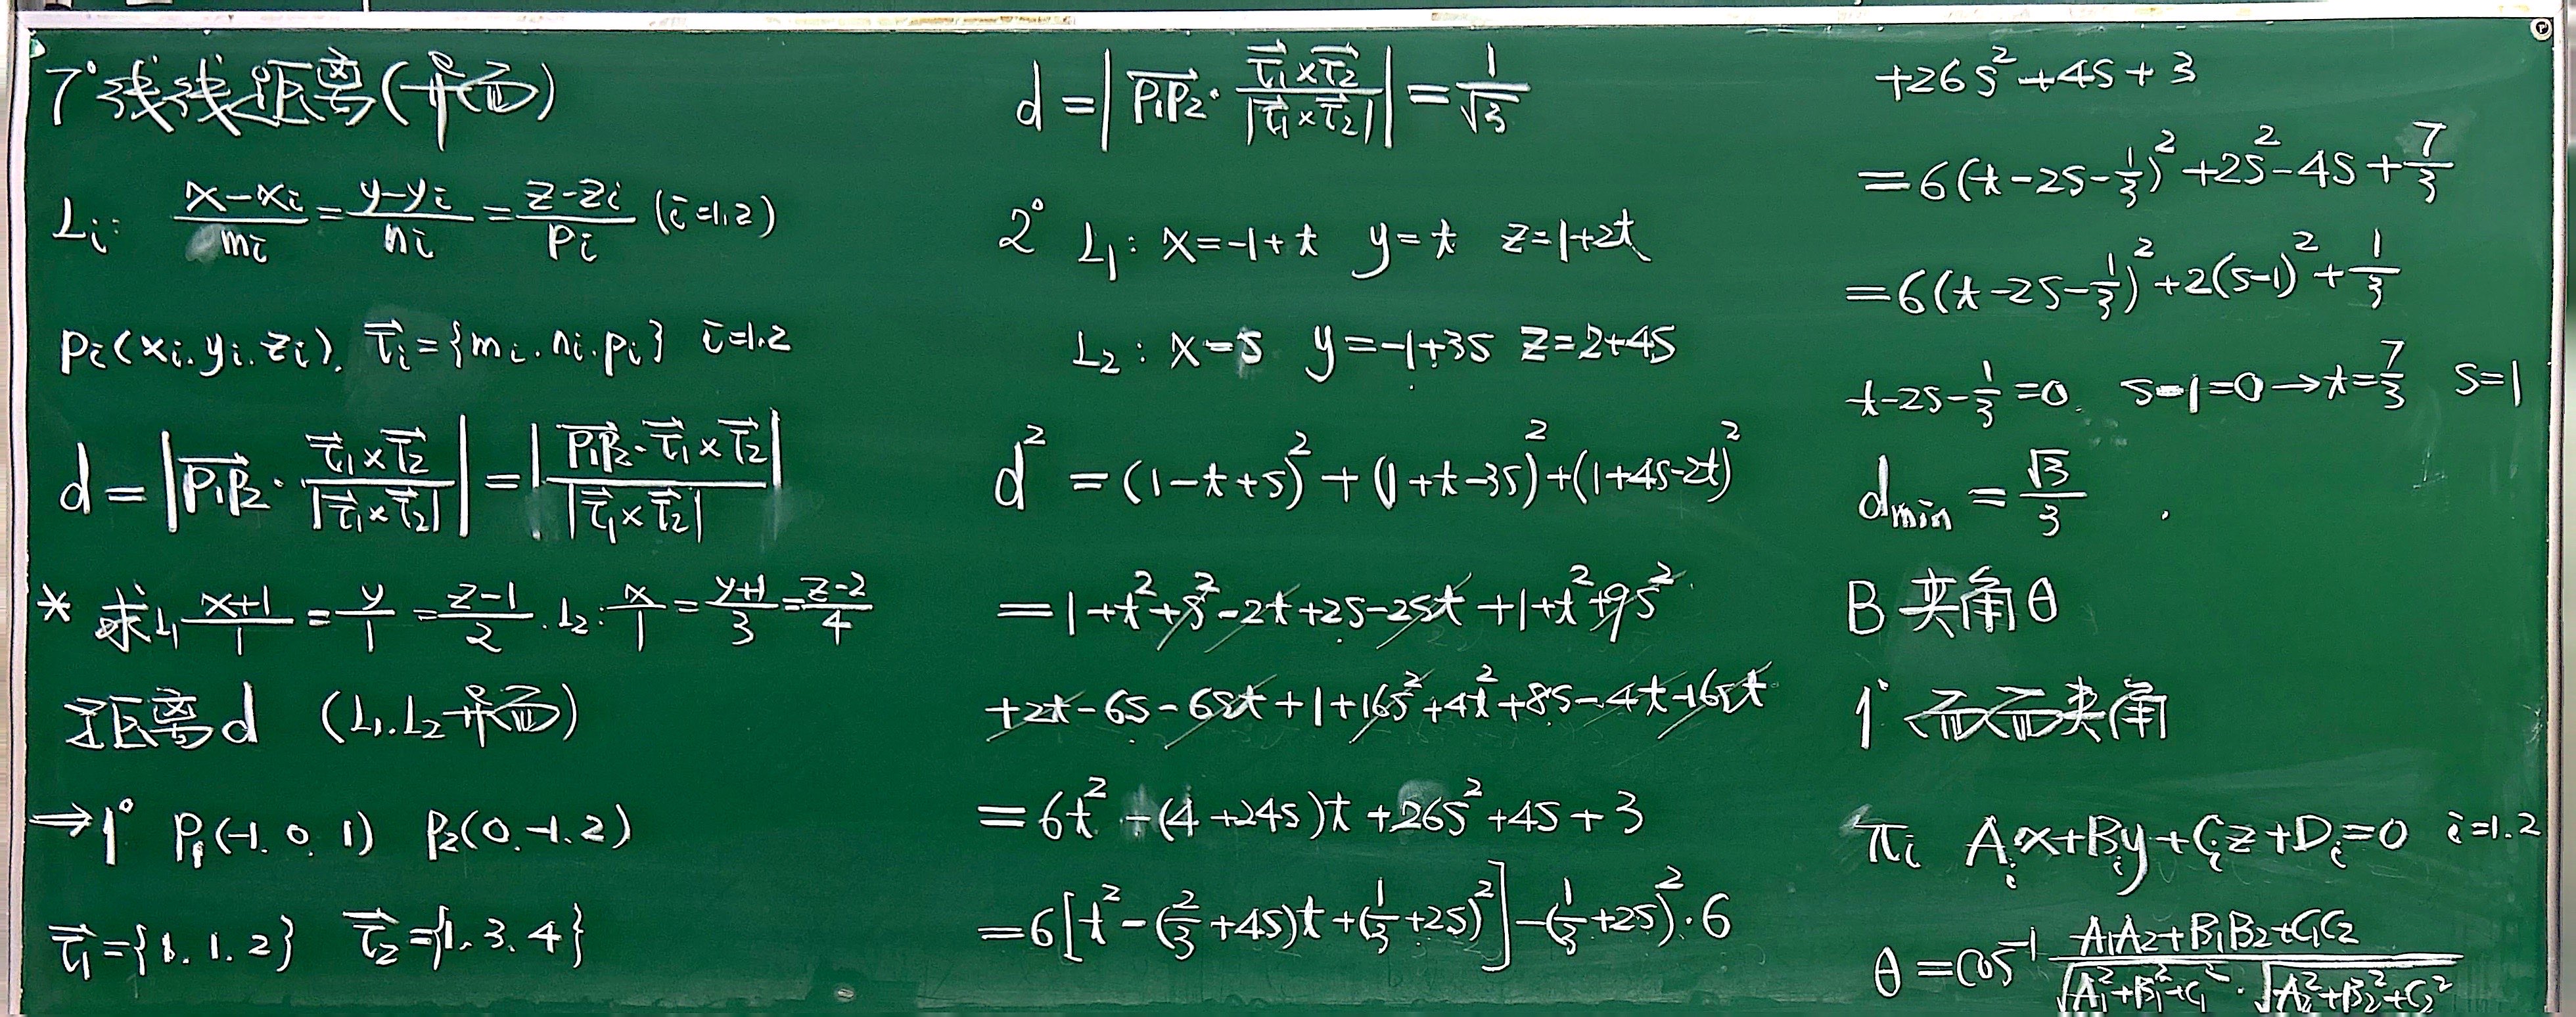 7° 线线距离(异面)
Lᵢ: (x-xᵢ)/mᵢ = (y-yᵢ)/nᵢ = (z-zᵢ)/pᵢ (i=1,2)
Pᵢ(xᵢ.yᵢ.zᵢ). τ⃗ᵢ={mᵢ.nᵢ.pᵢ} i=1.2
d = |P₁P₂⃗ · (τ⃗₁×τ⃗₂)/|τ⃗₁×τ⃗₂|| = |(P₁P₂⃗·τ⃗₁×τ⃗₂)/|τ⃗₁×τ⃗₂||
* 求L₁ (x+1)/1 = y/1 = (z-1)/2 . L₂: x/1 = (y+1)/3 = (z-2)/4
距离d (L₁.L₂异面)
→1° P₁(-1.0.1) P₂(0.-1.2)
τ⃗₁={1.1.2} τ⃗₂={1.3.4}
d = |P₁P₂⃗ · (τ⃗₁×τ⃗₂)/|τ⃗₁×τ⃗₂|| = 1/√3
2° L₁: x=-1+t y=t z=1+2t
L₂: x=s y=-1+3s z=2+4s
d² = (1-t+s)² + (1+t-3s)² + (1+4s-2t)²
= 1+t²+s²-2t+2s-2st+1+t²+9s²
+2t-6s-6st+1+16s²+4t²+8s-4t-16st
= 6t² -(4+24s)t+26s²+4s+3
= 6[t²-(2/3+4s)t+(1/3+2s)²]-(1/3+2s)²·6
+26s²+4s+3
= 6(t-2s-1/3)²+2s²-4s+7/3
= 6(t-2s-1/3)²+2(s-1)²+1/3
t-2s-1/3=0. s-1=0→t=7/3 s=1
dmin = √3/3 .
B 夹角θ
1° 面面夹角
πᵢ Aᵢx+Bᵢy+Cᵢz+Dᵢ=0 i=1.2
θ=cos⁻¹ (A₁A₂+B₁B₂+C₁C₂)/(√(A₁²+B₁²+C₁²)·√(A₂²+B₂²+C₂²))